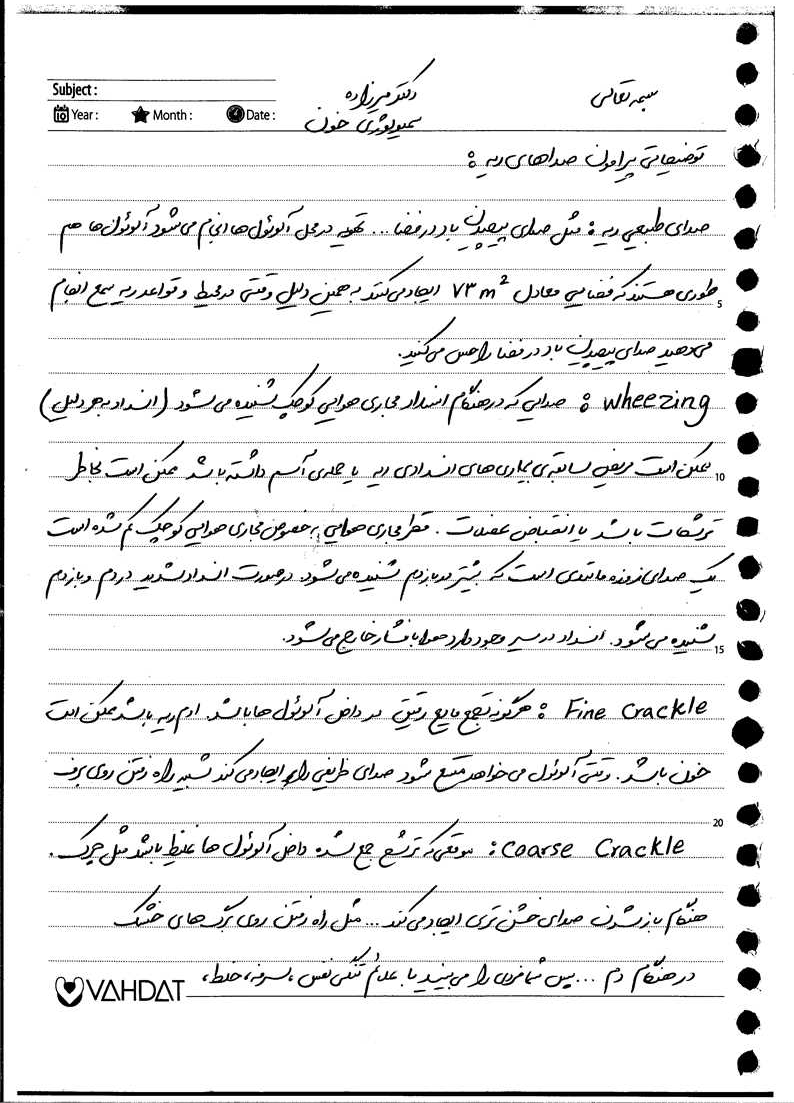 Subject :
Year :   Month :   Date :
بسمه تعالی
دکتر میرزاده
سمیولوژی خون
توضیحاتی پیرامون صداهای ریه :
صدای طبیعی ریه : مثل صدای پیچیدن باد در فضا ... تهویه در محل آلوئول ها انجام می شود آلوئول ها هم
طوری هستند که فضایی معادل ۷۳ m² ایجاد می کنند به همین دلیل وقتی در محیط و قواعد ریه سمع انجام 5
می دهید صدای پیچیدن باد در فضا را حس می کنید.
wheezing : صدایی که در هنگام انسداد مجاری هوایی کوچک شنیده می شود (انسداد به هر دلیل)
ممکن است مریض سابقه ی بیماری های انسدادی ریه یا حمله ی آسم داشته باشد ممکن است بخاطر 10
ترشحات باشد یا انقباض عضلات . قطر مجاری هوایی به خصوص مجاری هوایی کوچک کم شده است
یک صدای زوزه مانندی است که بیشتر در بازدم شنیده می شود. در صورت انسداد شدید در دم و بازدم
شنیده می شود. انسداد در مسیر وجود دارد هوا با فشار خارج می شود. 15
Fine crackle : هرگونه تجمع مایع رقیق در داخل آلوئول ها باشد. ادم ریه باشد ممکن است
خون باشد. وقتی آلوئول می خواهد متسع شود صدای ظریفی را ایجاد می کند شبیه راه رفتن روی برف
20
Coarse Crackle : موقعی که ترشح جمع شده داخل آلوئول ها غلیظ باشد مثل چرک .
هنگام باز شدن صدای خشن تری ایجاد می کند ... مثل راه رفتن روی برگ های خشک
در هنگام دم ... پس شما فردی را می بینید با علائم تنگی نفس ، سرفه، خلط،
VAHDAT